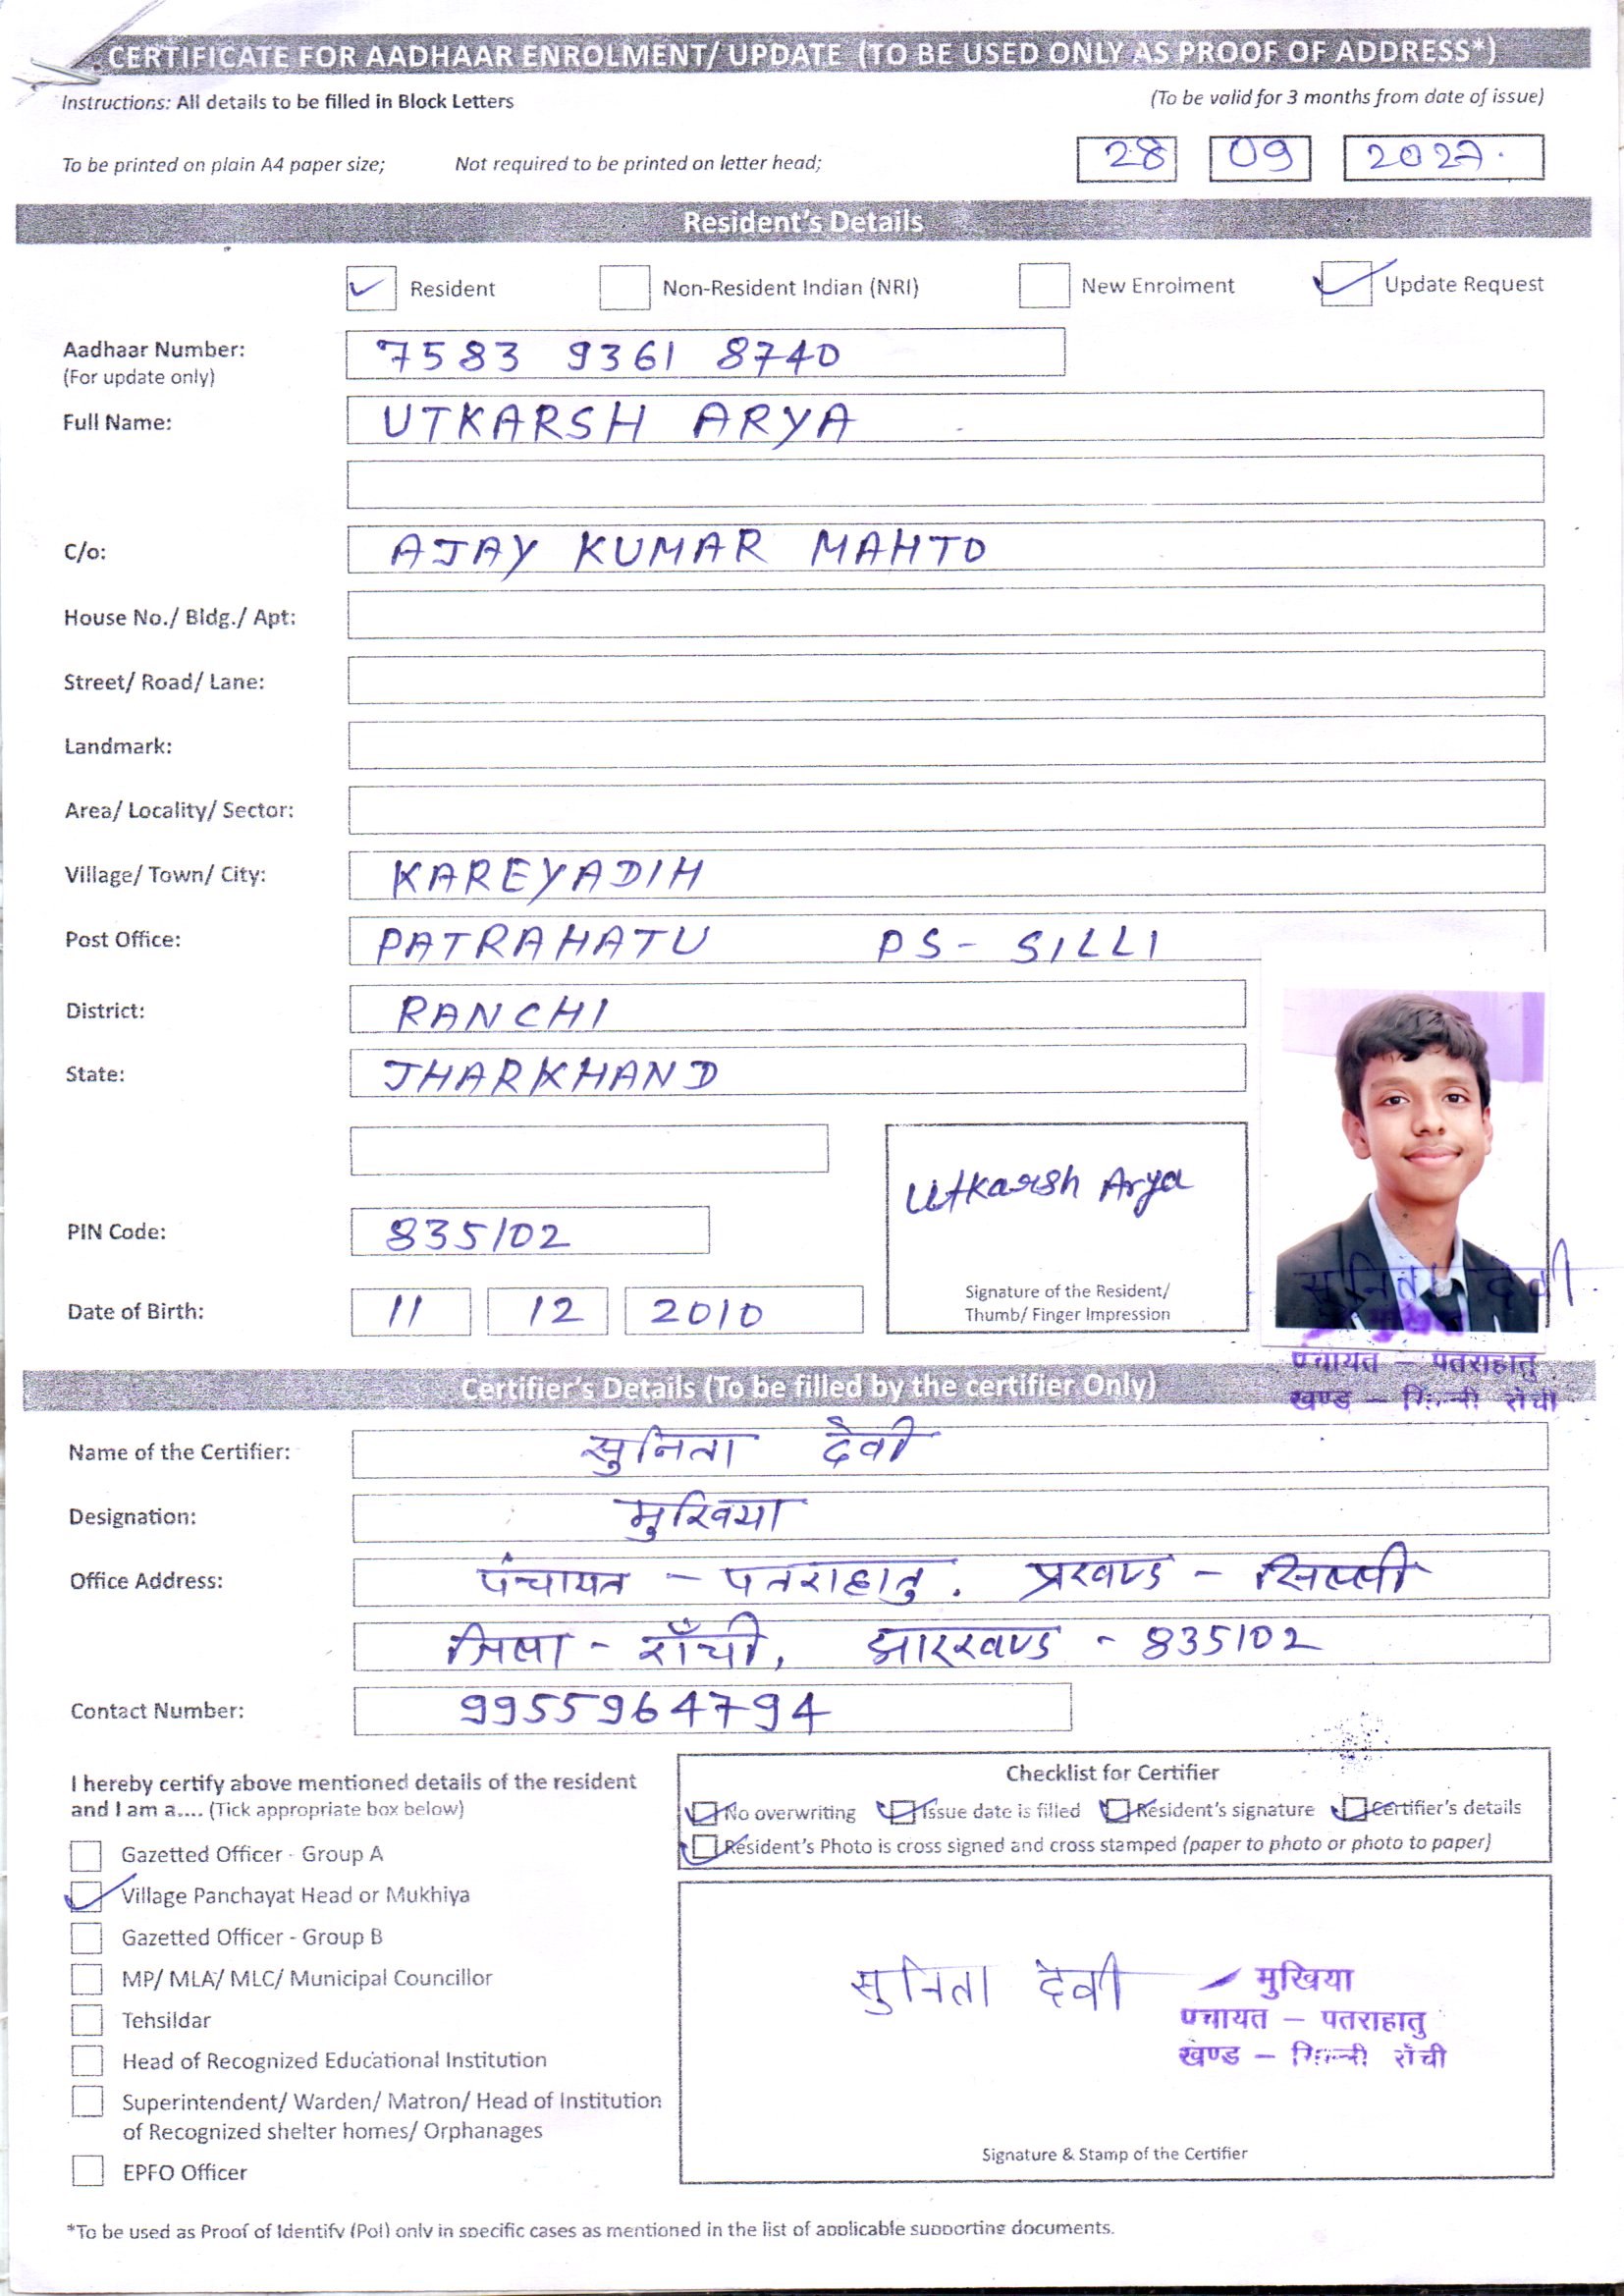 CERTIFICATE FOR AADHAAR ENROLMENT/ UPDATE (TO BE USED ONLY AS PROOF OF ADDRESS*)
Instructions: All details to be filled in Block Letters (To be valid for 3 months from date of issue)
To be printed on plain A4 paper size; Not required to be printed on letter head; 28 09
Resident's Details
Resident Non-Resident Indian (NRI) New Enrolment Update Request
Aadhaar Number: 7583 9361 8740
(For update only)
Full Name: UTKARSH ARYA
C/o: AJAY KUMAR MAHTO
House No./ Bldg./ Apt:
Street/ Road/ Lane:
Landmark:
Area/ Locality/ Sector:
Village/ Town/ City: KAREYADIH
Post Office: PATRAHATU PS- SILLI
District: RANCHI
State: JHARKHAND
Utkarsh Arya
PIN Code: 835102
Signature of the Resident/
Thumb/ Finger Impression
Date of Birth: 11 12 2010
सुनिता देवी
पंचायत – पतराहातु
खण्ड – राँची
Certifier's Details (To be filled by the certifier Only)
Name of the Certifier: सुनिता देवी
Designation: मुखिया
Office Address: पंचायत – पतराहातु. प्रखण्ड – सिल्ली
जिला - राँची, झारखण्ड - 835102
Contact Number: 9955964794
I hereby certify above mentioned details of the resident
and I am a.... (Tick appropriate box below)
Gazetted Officer - Group A
Village Panchayat Head or Mukhiya
Gazetted Officer - Group B
MP/ MLA/ MLC/ Municipal Councillor
Tehsildar
Head of Recognized Educational Institution
Superintendent/ Warden/ Matron/ Head of Institution
of Recognized shelter homes/ Orphanages
EPFO Officer
Checklist for Certifier
No overwriting Issue date is filled Resident's signature Certifier's details
Resident's Photo is cross signed and cross stamped (paper to photo or photo to paper)
सुनिता देवी
मुखिया
पंचायत – पतराहातु
खण्ड – राँची
Signature & Stamp of the Certifier
*To be used as Proof of Identify (PoI) only in specific cases as mentioned in the list of applicable supporting documents.